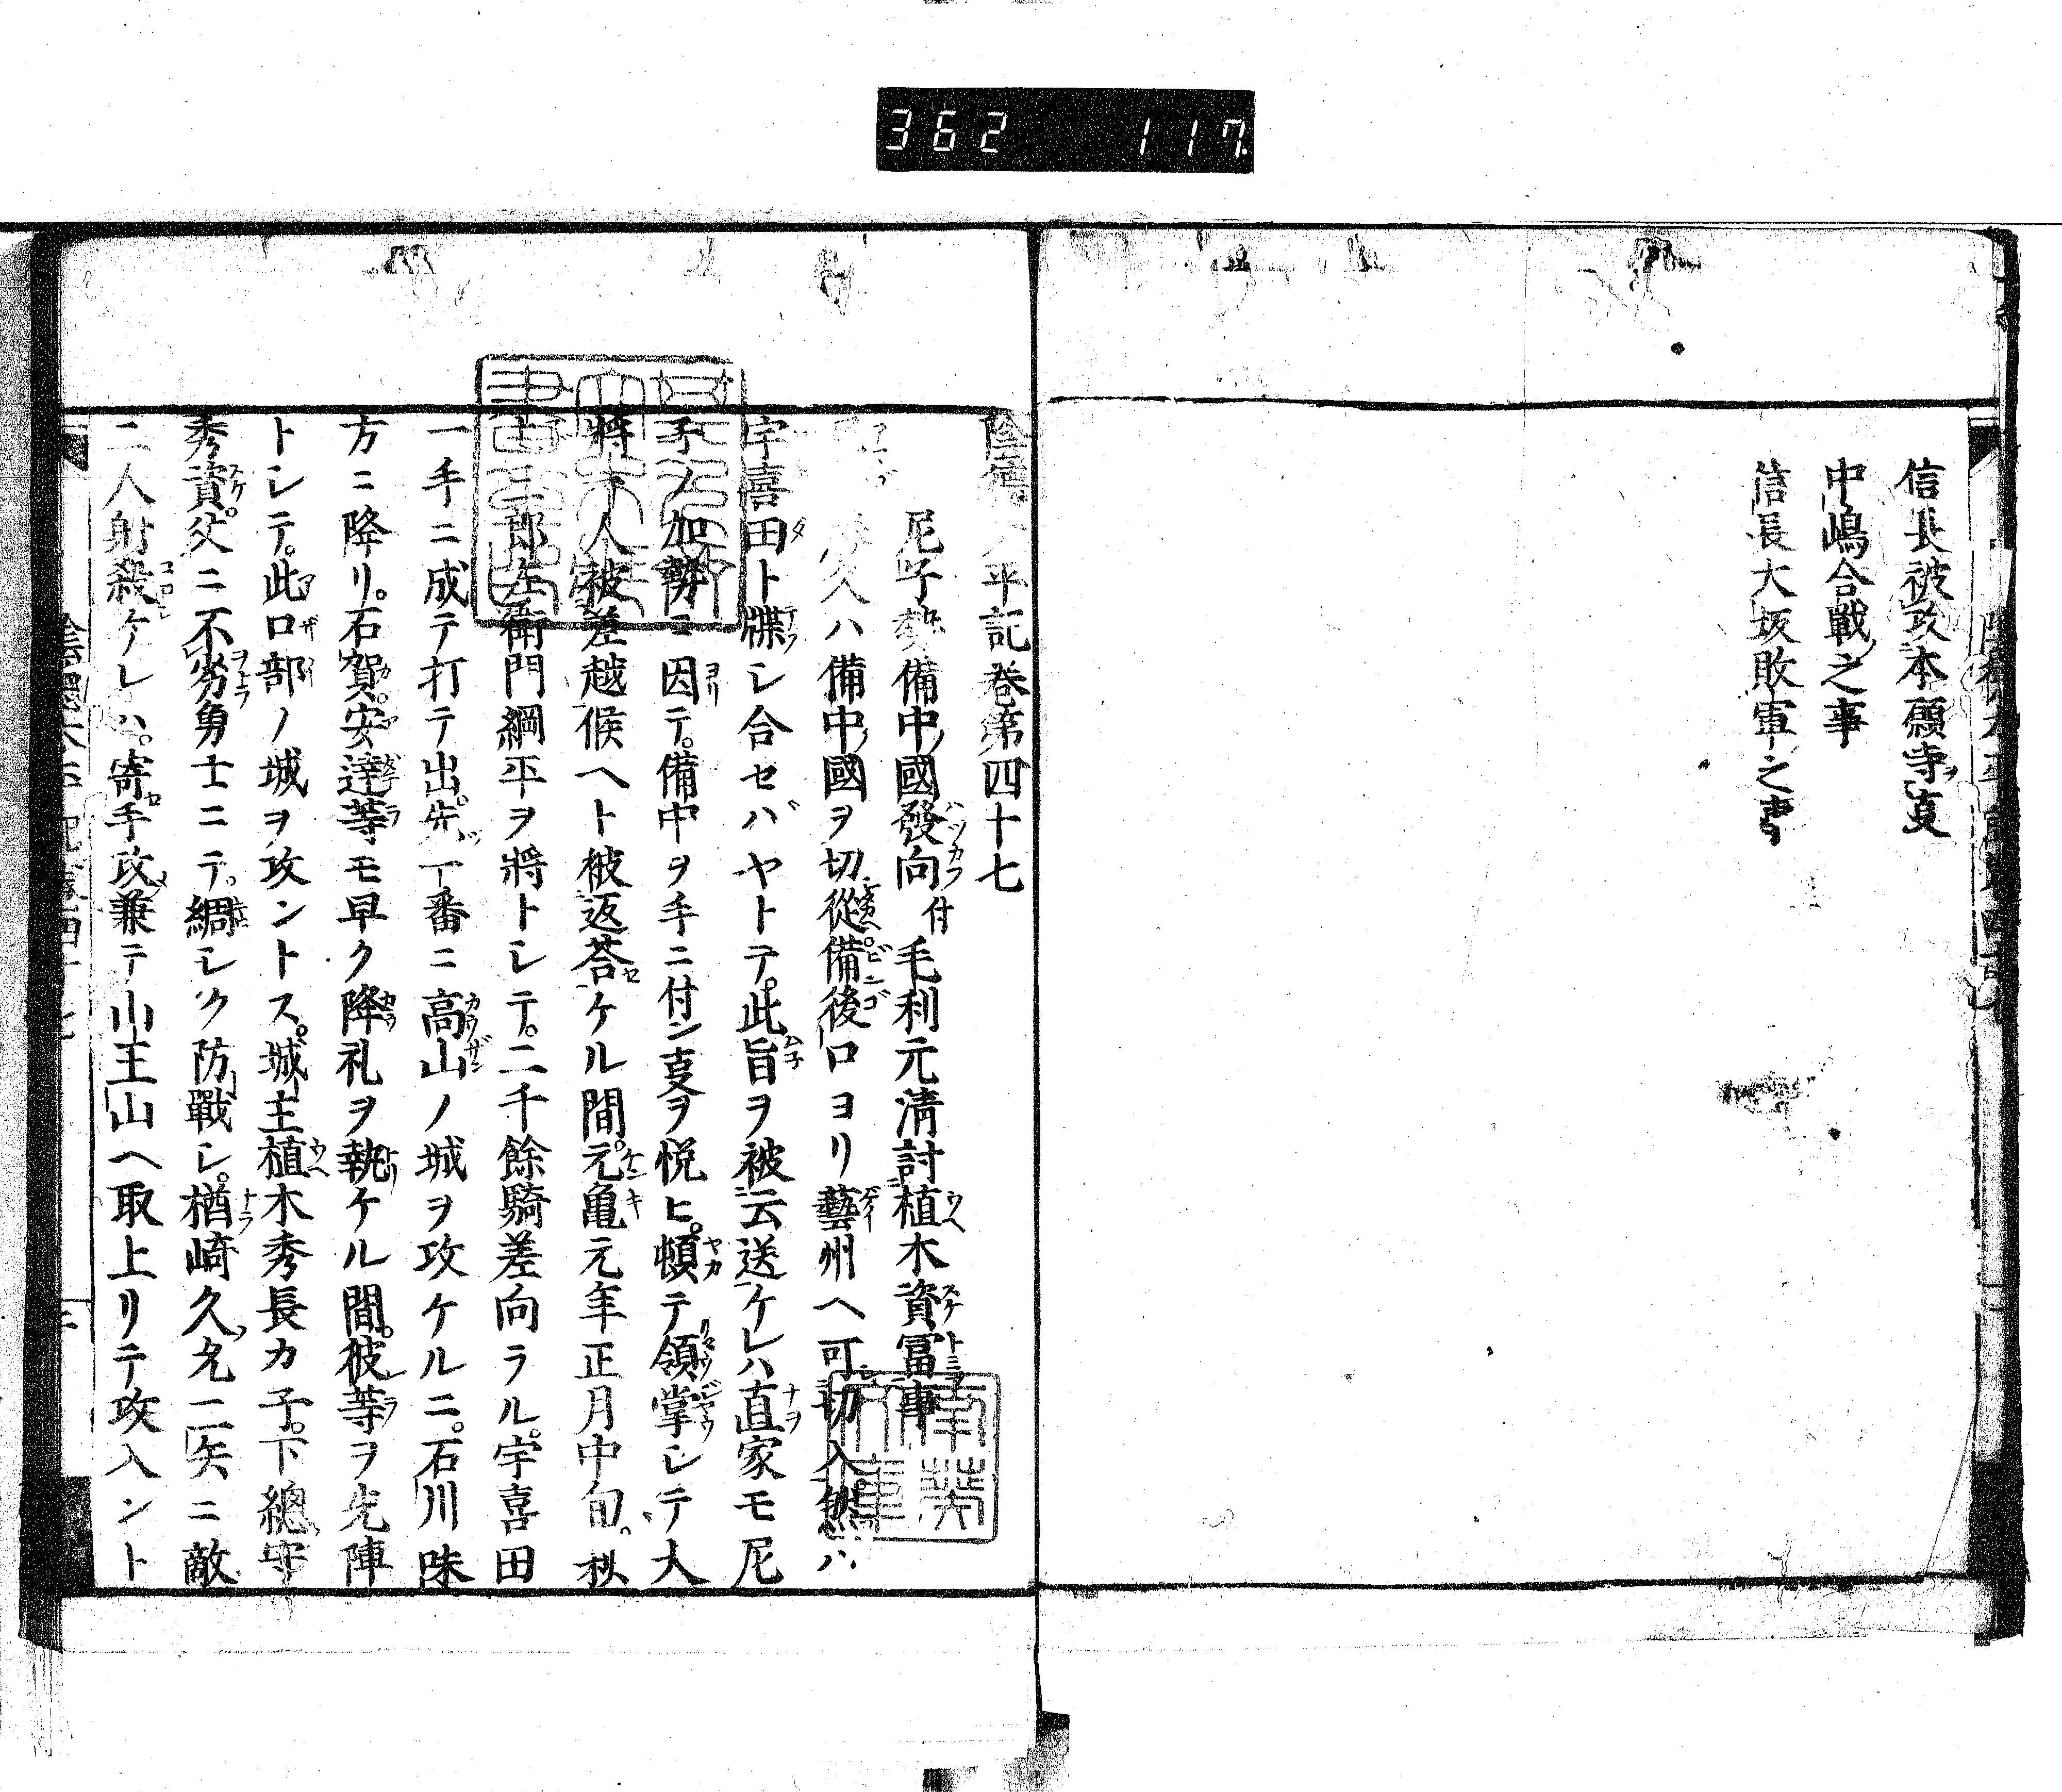 362 117
信長被攻本願寺夏
中嶋合戰之事
信長大坂敗軍之事
平記巻第四十七
尼子勢備中國發向付毛利元淸討植木資冨事
久ハ備中國ヲ切從備後口ヨリ藝州ヘ可切入然ハ
宇喜田ト牒シ合セバヤトテ此旨ヲ被云送ケレハ直家モ尼
子ノ加勢ニ因テ備中ヲ手ニ付ン夏ヲ悦ヒ頓テ領掌シテ大
將十人被差越候ヘト被返荅ケル間元亀元年正月中旬秋
郎左衛門綱平ヲ將トシテ二千餘騎差向ラル宇喜田
一手ニ成テ打テ出先一番ニ高山ノ城ヲ攻ケルニ石川味
方ニ降リ石賀安達等モ早ク降礼ヲ執ケル間彼等ヲ先陣
トシテ此口部ノ城ヲ攻ントス城主植木秀長カ子下總守
秀資父ニ不劣勇士ニテ稠シク防戰シ楢崎久允二矢ニ敵
二人射殺ケレハ寄手攻兼テ山王山ヘ取上リテ攻入ント